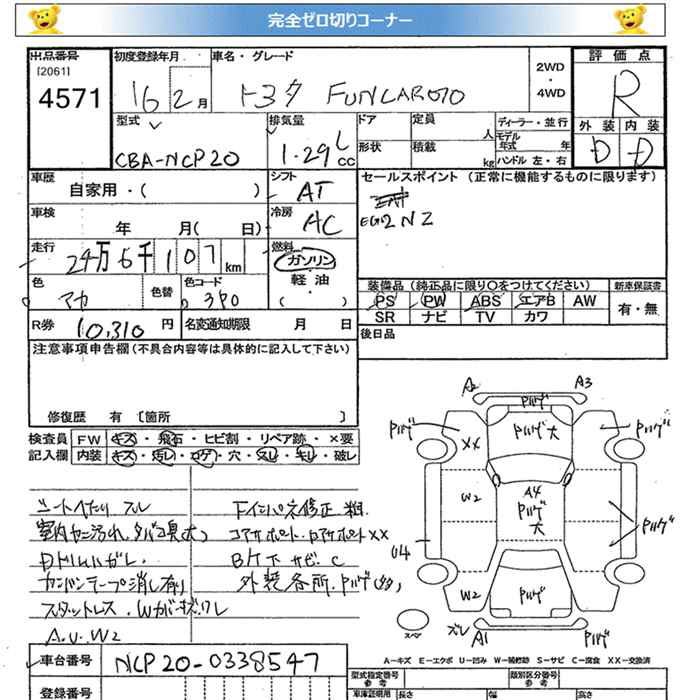 完全ゼロ切りコーナー
出品番号
[2061]
4571
初度登録年月
16 2月
車名・グレード
トヨタ FUNCARGO
2WD
・
4WD
評価点
R
外装 内装
D D
型式
CBA-NCP20
排気量
1.29L
CC
ドア
定員
人
ディーラー・並行
形状
積載
kg
モデル年式
年
ハンドル 左・右
車歴
自家用・( )
シフト
AT
セールスポイント (正常に機能するものに限ります)
EG2NZ
車検
年 月( 日)
冷房
AC
走行
24万6千107km
燃料
ガソリン
軽油
( )
色
アカ
色替
色コード
3P0
装備品 (純正品に限り○をつけてください)
PS PW ABS エアB AW
SR ナビ TV カワ
新車保証書
有・無
R券 10,310 円
名変通知期限 月 日
後日品
注意事項申告欄 (不具合内容等は具体的に記入して下さい)
修復歴 有 〔箇所 〕
検査員
記入欄
FW キズ・飛石・ヒビ割・リペア跡・×要
内装 キズ・汚レ・コゲ・穴・スレ・キレ・破レ
シートへたり スレ
室内ヤニ汚れ、タバコ臭大
Dトリムハガレ、
カンバンテープ消し有り
スタットレス、Wカバーキズ、ワレ
A、U、W2
下インパネ修正 粗
コアサポート、ロアサポートXX
B/ケ下サビ、C
外装各所、Pハゲ(多)
A2
A3
Pハゲ
Pハゲ
XX
Pハゲ大
Pハゲ
W2
A4
Pハゲ
大
Pハゲ
U4
W2
Pハゲ
スペア
ズレ
A1
Pハゲ
A-キズ E-エクボ U-凹み W-補修跡 S-サビ C-腐食 XX-交換済
車台番号
NCP20-0338547
型式指定番号
参考
類別区分番号
参考
登録番号
車庫証明用
長さ
幅
高さ